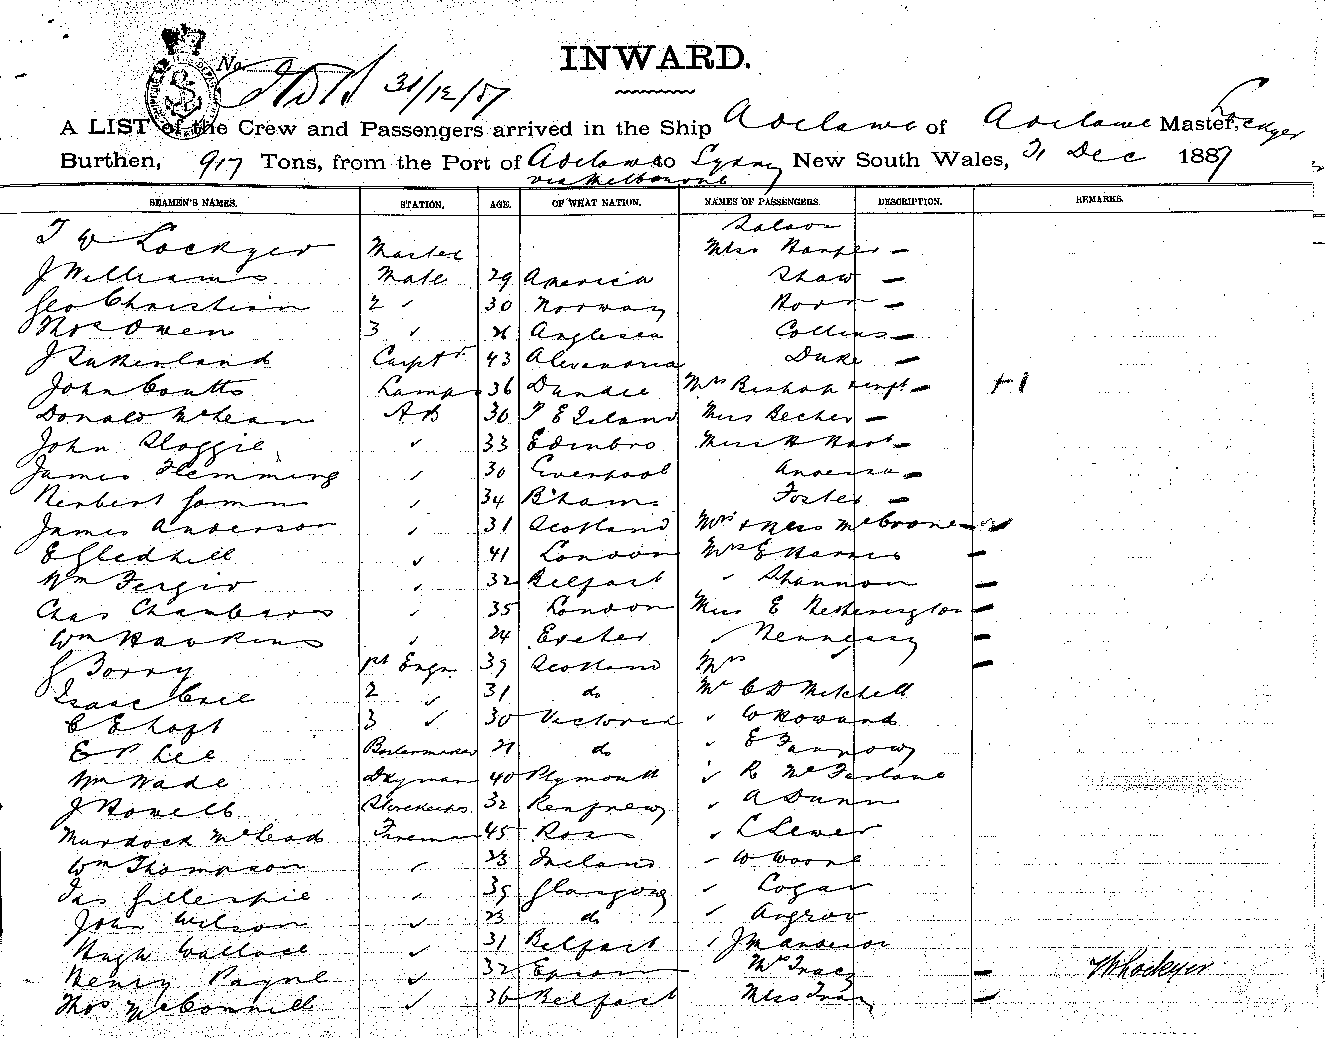 INWARD.
No 31/12/87
A LIST of the Crew and Passengers arrived in the Ship Adelaide of Adelaide Master, Lockyer
Burthen, 917 Tons, from the Port of Adelaide to Sydney New South Wales, 31 Dec 1887
via Melbourne
SEAMEN'S NAMES. STATION. AGE. OF WHAT NATION. NAMES OF PASSENGERS. DESCRIPTION. REMARKS.
Saloon
T W Lockyer Master Miss Harper —
J Williams Mate 29 America Shaw —
Geo Christian 2 " 30 Norway Horn —
Thos Owen 3 " 26 Anglesea Collins —
J Sutherland Carptr 43 Alexandria Duke —
John Coutts Lamps 36 Dundee Mrs Bishop + inft — + 1
Donald McLean AB 30 P E Island Miss Becher —
John Sloggie " 33 Edinbro Miss H Hart —
James Flemming " 30 Liverpool Anderson —
Herbert James " 34 B'ham Foster —
James Anderson " 31 Scotland Mrs + Miss McCrone —
E Gledhill " 41 London Mrs E Harris —
Wm Fergie " 32 Belfast " Shannon —
Chas Chambers " 35 London Miss E Hetherington —
Wm Hawkins " 24 Exeter " Hennessy —
G Borry 1st Engr 39 Scotland Mrs " —
Isaac 2 " 31 do Mr C D Mitchell
C E Loft 3 " 30 Victoria " W Howard
E P Lee Boilermaker 21 do " E
Wm Wade Dkyman 40 Plymouth " R McFarlane
J Howell Storekeepr 32 Renfrew " A Dunn
Murdock McLeod Fireman 45 Ross " C Lewer
Wm Thompson " 23 Ireland " W
Jas Gillespie " 39 Glasgow " Logan
John Wilson " 23 do "
Hugh Wallace " 31 Belfast " J M Anderson
Henry Payne " 32 Epsom Mrs Tracy — TW Lockyer
Thos McConnell " 36 Belfast Miss Tracy —